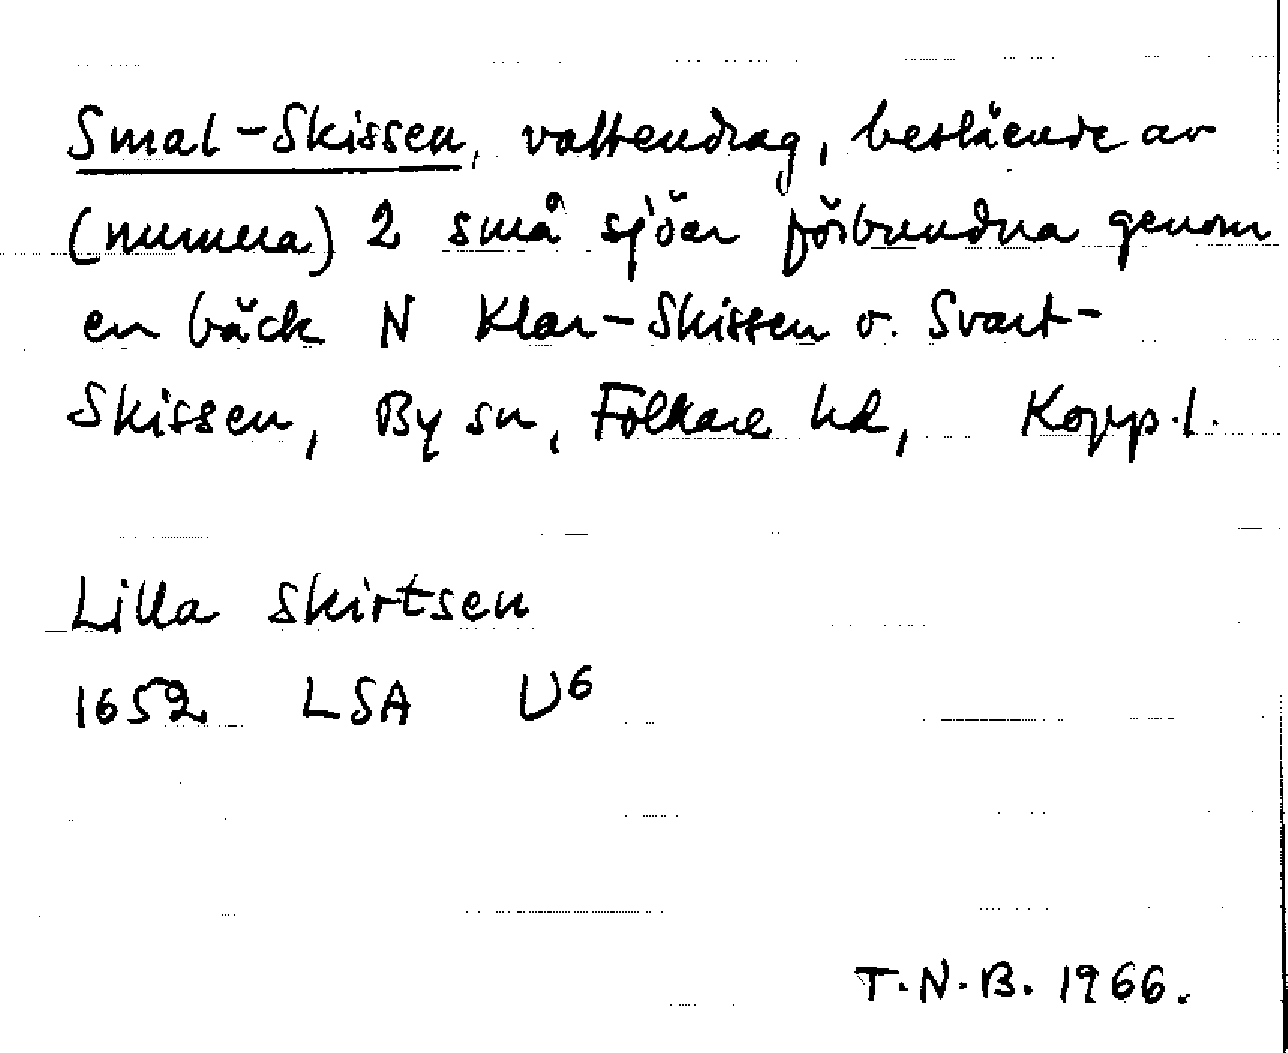 Smal-Skissen, vattendrag, bestående av
(numera) 2 små sjöar förbundna genom
en bäck N Klar-Skissen o. Svart-
Skissen, By sn, Folkare hd, Kopp.l.
Lilla Skirtsen
1652 LSA U6
T.N.B. 1966.